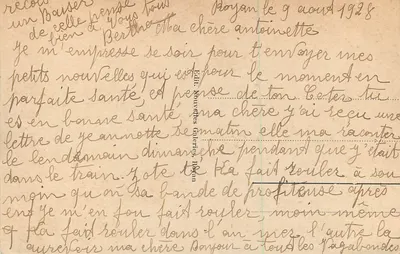 Royan le 9 aout 1928
Ma chère antoinette
Je m'empresse se soir pour t'envoyer mes
petits nouvelles qui est pour le moment en
parfaite santé, et pense de ton Coter tu
es en bonne santé, ma chère j'ai reçu une
lettre de jeannotte se matin elle ma raconter
le lendemain dimanche pendant que j'était
dans le train. Jote te la fait rouler à sou
moin qu on sa bande de profiteuse après
en je m'en fou fait rouler, moin même
q la fait rouler dans l'an mer l'autre la
aurevoir ma chère Bonjour à tous les Vagabondes
un Baiser
de celle pense
bien à Vous tous
Berthe
Edit. Nouvelles Galeries, Royan